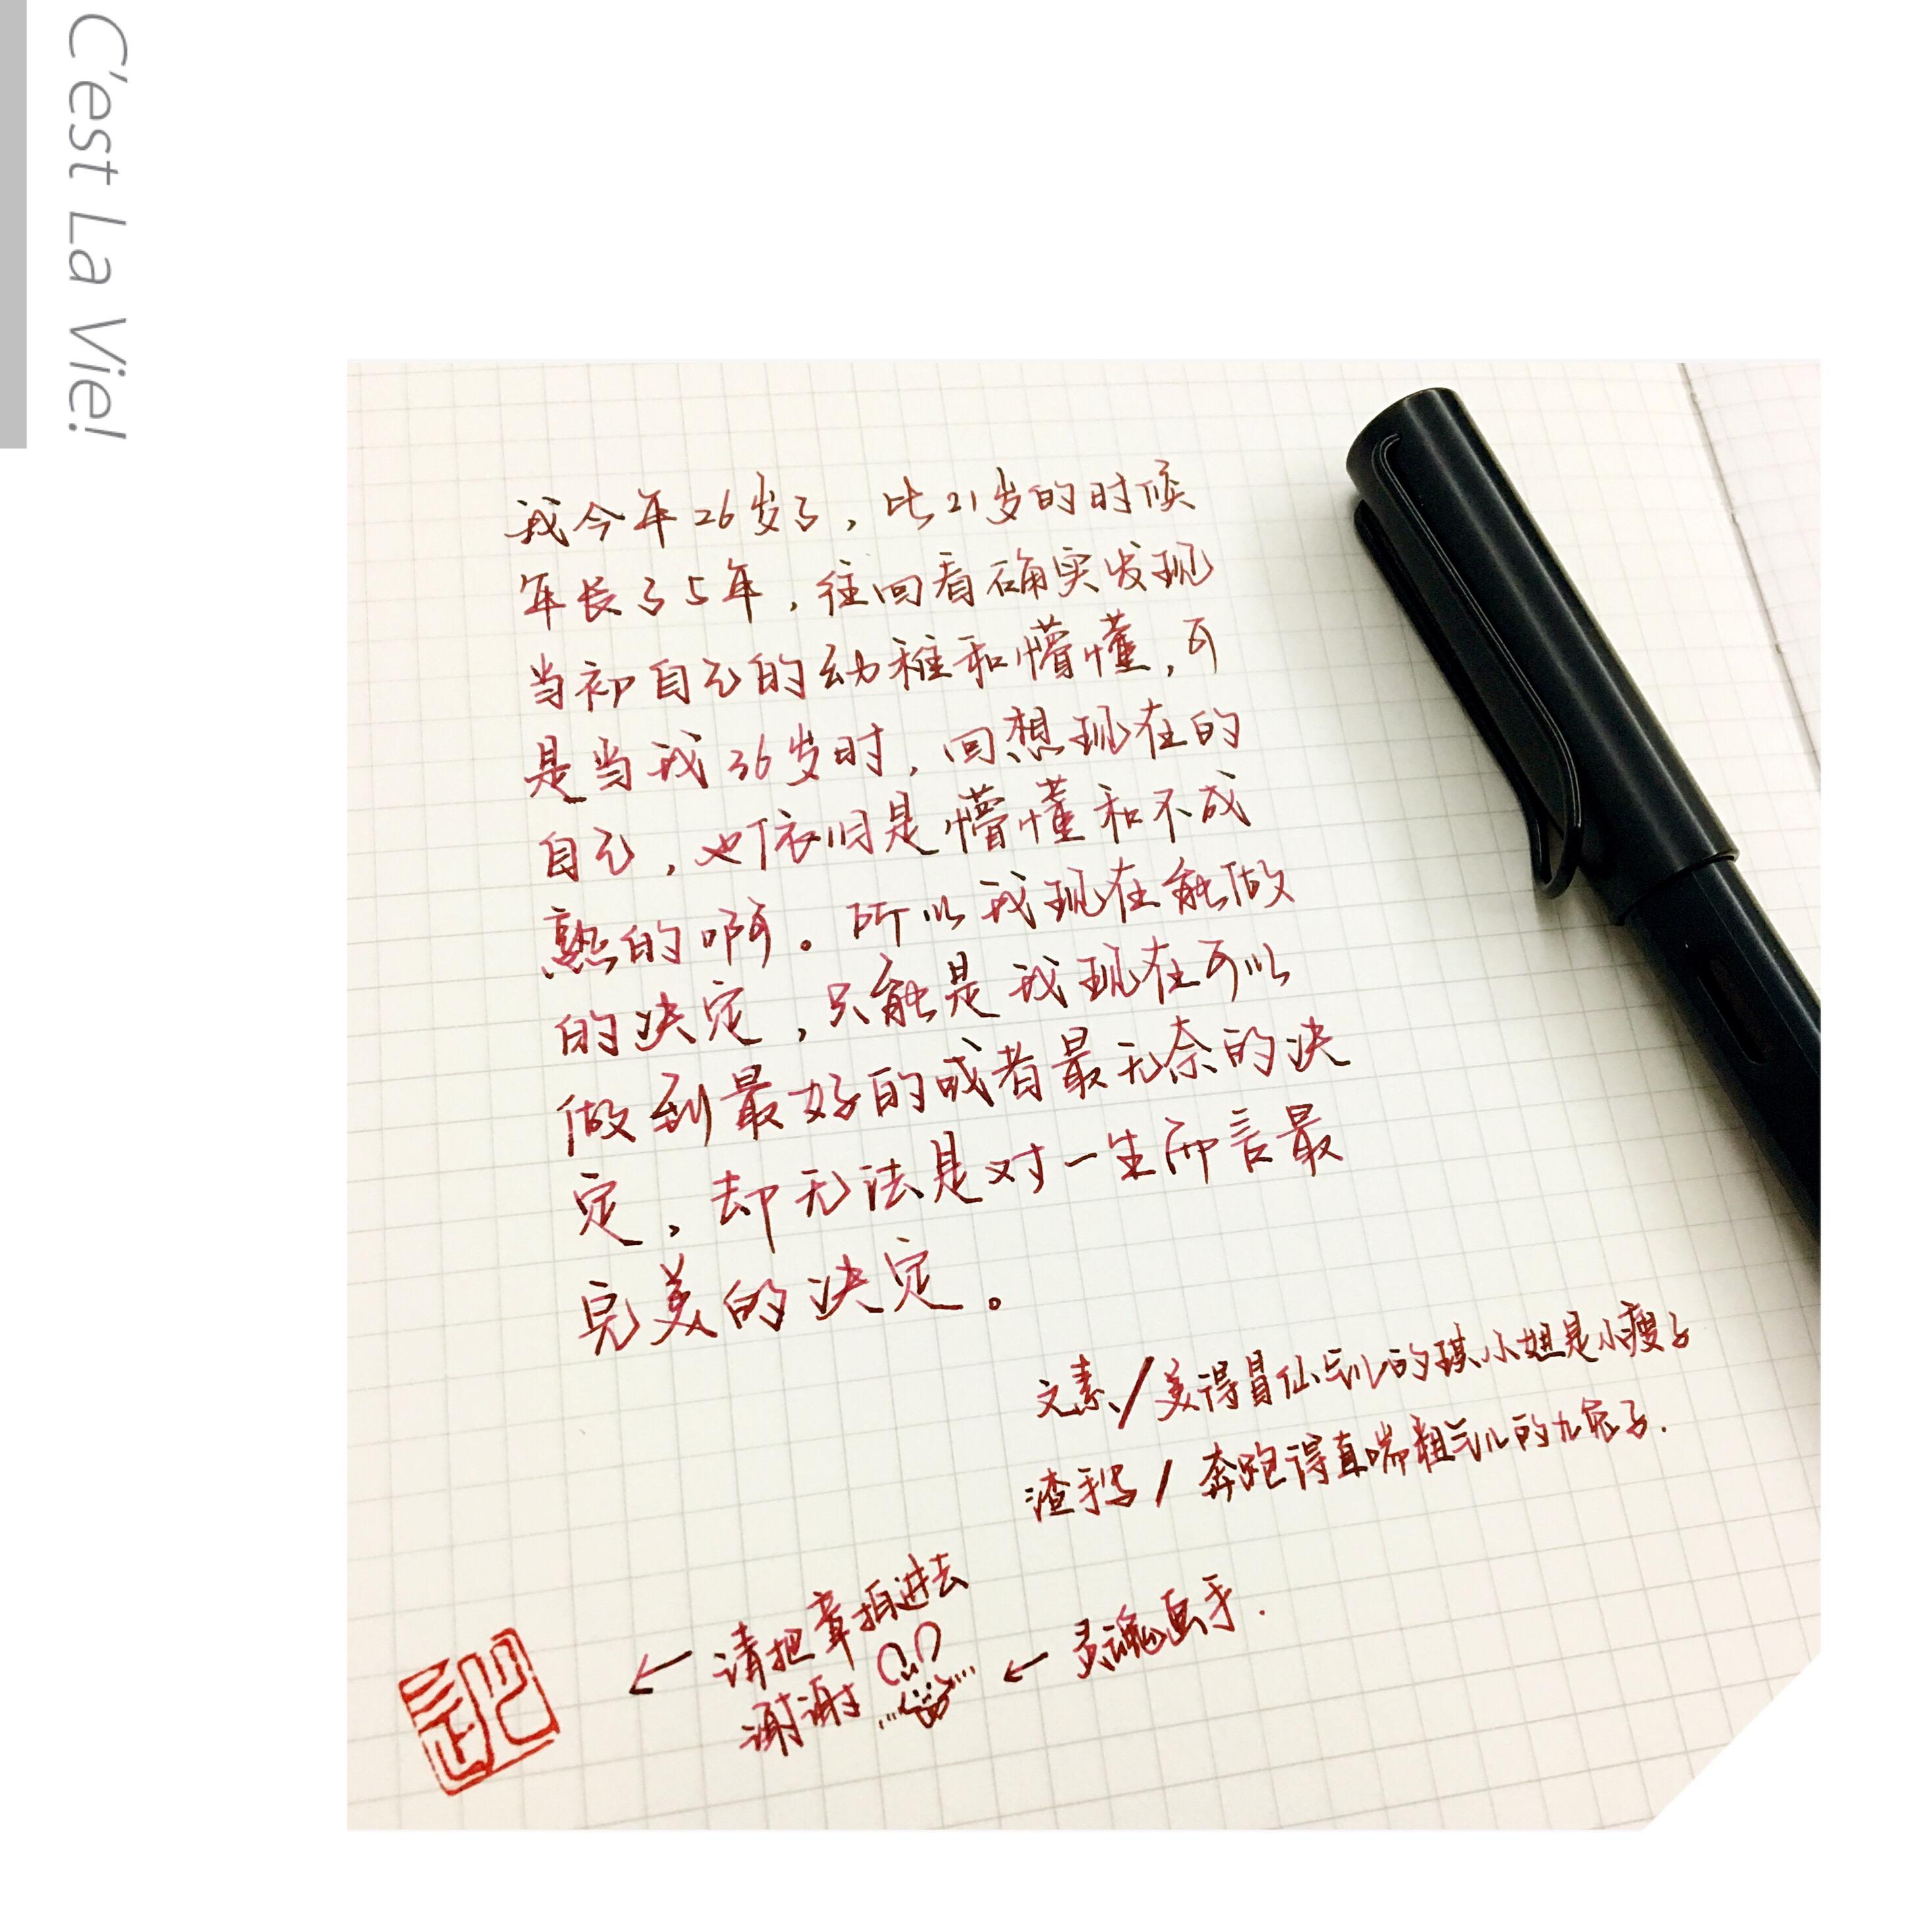 C'est La Vie!
我今年26岁了，比21岁的时候
年长了5年，往回看确实发现
当初自己的幼稚和懵懂，可
是当我36岁时，回想现在的
自己，也依旧是懵懂和不成
熟的啊。所以我现在能做
的决定，只能是我现在可以
做到最好的或者最无奈的决
定，却无法是对一生而言最
完美的决定。
文素/美得冒仙气儿的琪小妞是小瘦子
渣手写/奔跑得直喘粗气儿的九兔子.
←请把章拍进去
谢谢
←灵魂画手.